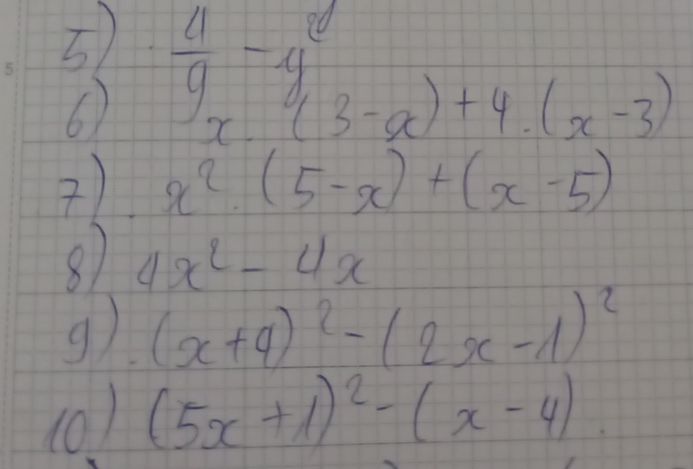 5) \frac{4}{9} - y^2
6) x \cdot (3-x) + 4 \cdot (x-3)
7) x^2 \cdot (5-x) + (x-5)
8) 4x^2 - 4x
9) (x+4)^2 - (2x-1)^2
10) (5x+1)^2 - (x-4)